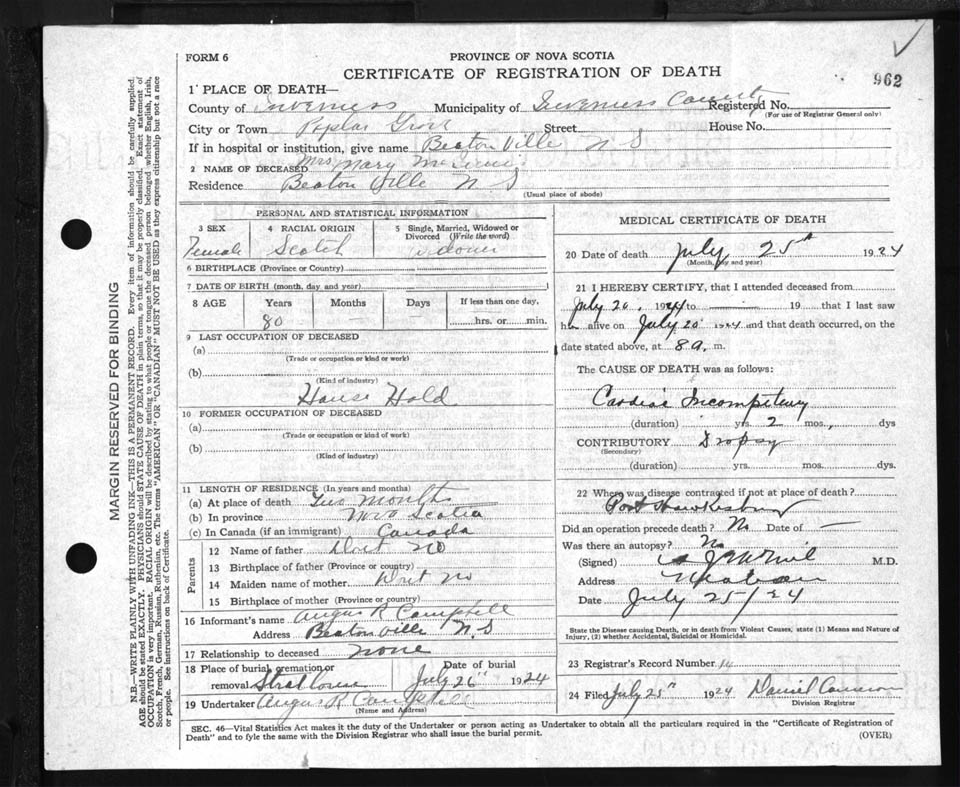 FORM 6
PROVINCE OF NOVA SCOTIA
CERTIFICATE OF REGISTRATION OF DEATH
962
1 PLACE OF DEATH—
County of Inverness Municipality of Inverness County Registered No.
(For use of Registrar General only)
City or Town Poplar Grove Street House No.
If in hospital or institution, give name Beaton Ville N S
2 NAME OF DECEASED Mrs Mary
Residence Beaton Ville N S
(Usual place of abode)
PERSONAL AND STATISTICAL INFORMATION
3 SEX 4 RACIAL ORIGIN 5 Single, Married, Widowed or Divorced (Write the word)
Female Scotch
6 BIRTHPLACE (Province or Country)
7 DATE OF BIRTH (month, day, and year)
8 AGE Years Months Days If less than one day,
80 — hrs. or min.
9 LAST OCCUPATION OF DECEASED
(a)
(Trade or occupation or kind or work)
(b)
(Kind of industry)
House Hold
10 FORMER OCCUPATION OF DECEASED
(a)
(Trade or occupation or kind of work)
(b)
(Kind of industry)
11 LENGTH OF RESIDENCE (In years and months)
(a) At place of death Two Months
(b) In province Nova Scotia
(c) In Canada (if an immigrant) Canada
Parents
12 Name of father Dont no
13 Birthplace of father (Province or country)
14 Maiden name of mother Dont no
15 Birthplace of mother (Province or country)
16 Informant's name Angus R Campbell
Address Beatonville N. S
17 Relationship to deceased none
18 Place of burial, cremation or removal Date of burial July 26" 1924
19 Undertaker Angus R Campbell
(Name and Address)
MEDICAL CERTIFICATE OF DEATH
20 Date of death July 25th 1924
(Month, day and year)
21 I HEREBY CERTIFY, that I attended deceased from
July 20, 1924 to — 19 that I last saw
her alive on July 20 1924 and that death occurred, on the
date stated above, at 8 a. m.
The CAUSE OF DEATH was as follows:
Cardiac Incompetency
(duration) yrs. 2 mos., dys
CONTRIBUTORY Dropsy
(Secondary)
(duration) yrs. mos. dys.
22 Where was disease contracted if not at place of death?
Port Hawkesbury
Did an operation precede death? No Date of —
Was there an autopsy? No
(Signed) M.D.
Address
Date July 25/24
State the Disease causing Death, or in death from Violent Causes, state (1) Means and Nature of Injury, (2) whether Accidental, Suicidal or Homicidal.
23 Registrar's Record Number
24 Filed July 25th 1924 Daniel Cameron
Division Registrar
SEC. 46—Vital Statistics Act makes it the duty of the Undertaker or person acting as Undertaker to obtain all the particulars required in the "Certificate of Registration of
Death" and to fyle the same with the Division Registrar who shall issue the burial permit.
(OVER)
MARGIN RESERVED FOR BINDING
N.B.—WRITE PLAINLY WITH UNFADING INK—THIS IS A PERMANENT RECORD. Every item of information should be carefully supplied.
AGE should be stated EXACTLY. PHYSICIANS should STATE CAUSE OF DEATH in plain terms, so that it may be properly classified. Exact statement of
OCCUPATION is very important. RACIAL ORIGIN will be described by stating to what people or tongue the deceased person belonged whether English, Irish,
Scotch, French, German, Russian, Ruthenian, etc. The terms "AMERICAN" OR "CANADIAN" MUST NOT BE USED as they express citizenship but not a race
of people. See instructions on back of Certificate.